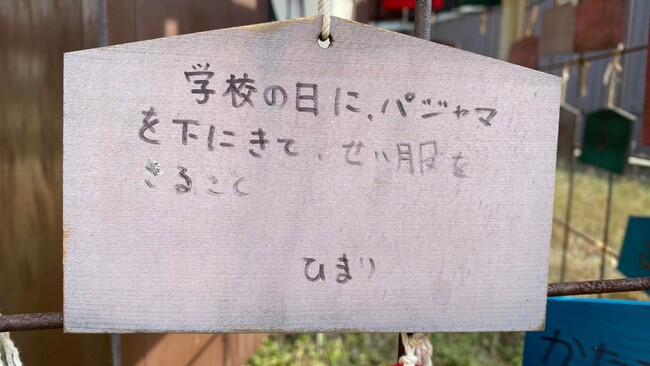 学校の日に、パジャマ
を下にきて、せい服を
きること
ひまり
かた